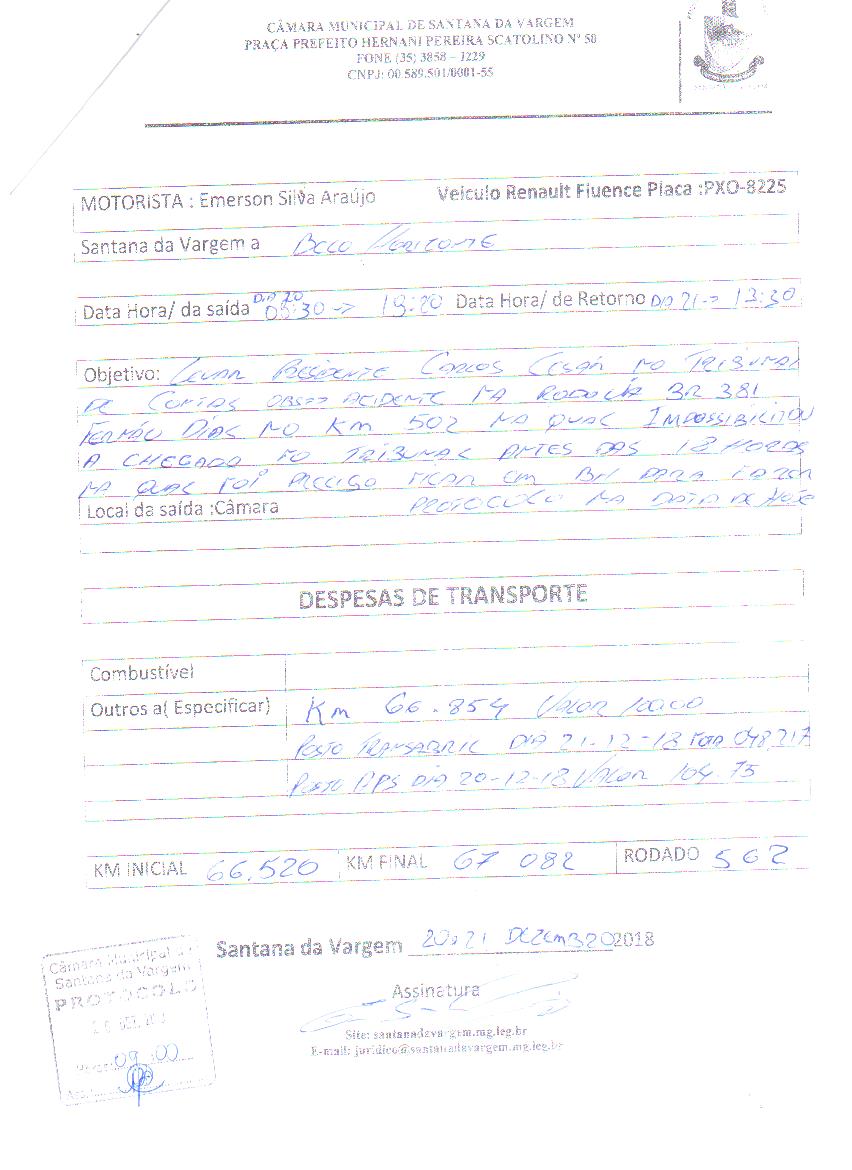 CÂMARA MUNICIPAL DE SANTANA DA VARGEM
PRAÇA PREFEITO HERNANI PEREIRA SCATOLINO Nº 58
FONE (35) 3858 – 1229
CNPJ: 00.589.501/0001-55
MOTORISTA : Emerson Silva Araújo Veiculo Renault Fluence Placa :PXO-8225
Santana da Vargem a BELO HORIZONTE
Data Hora/ da saída DIA 20 05:30 -> 19:20 Data Hora/ de Retorno DIA 21 -> 13:30
Objetivo: LEVAR PRESIDENTE CARLOS CESAR NO TRIBUNAL
DE CONTAS OBS ACIDENTE NA RODOVIA BR 381
FERNÃO DIAS NO KM 502 NA QUAL IMPOSSIBILITOU
A CHEGADA NO TRIBUNAL ANTES DAS 18 HORAS
NA QUAL FOI PRECISO FICAR EM BH PARA FAZER
Local da saída :Câmara PROTOCOLO NA DATA DE HOJE
DESPESAS DE TRANSPORTE
Combustível
Outros a( Especificar) KM 66.854 VALOR
POSTO DIA 21-12-18 048,217
POSTO DIA 20-12-18 VALOR 104.75
KM INICIAL 66.520 KM FINAL 67 082 RODADO 562
Santana da Vargem 20 a 21 DEZEMBRO 2018
Assinatura
Site: santanadavargem.mg.leg.br
E-mail: juridico@santanadavargem.mg.leg.br
Câmara Municipal de
Santana da Vargem
PROTOCOLO
09:00